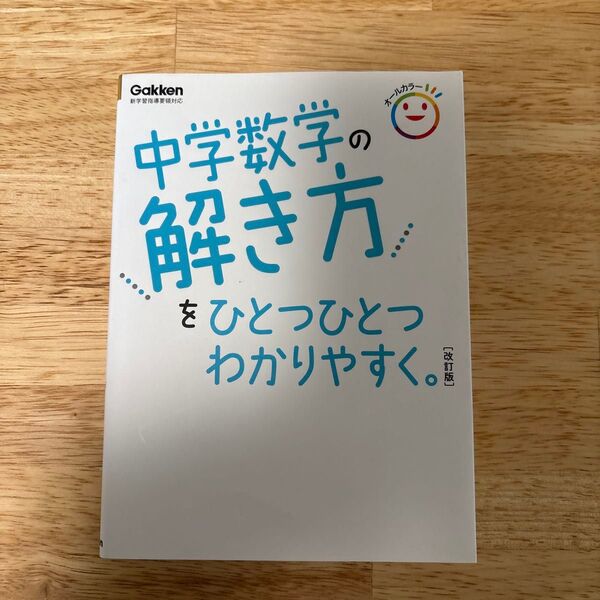 Gakken
新学習指導要領対応
オールカラー
中学数学の
解き方
をひとつひとつ
わかりやすく。
［改訂版］